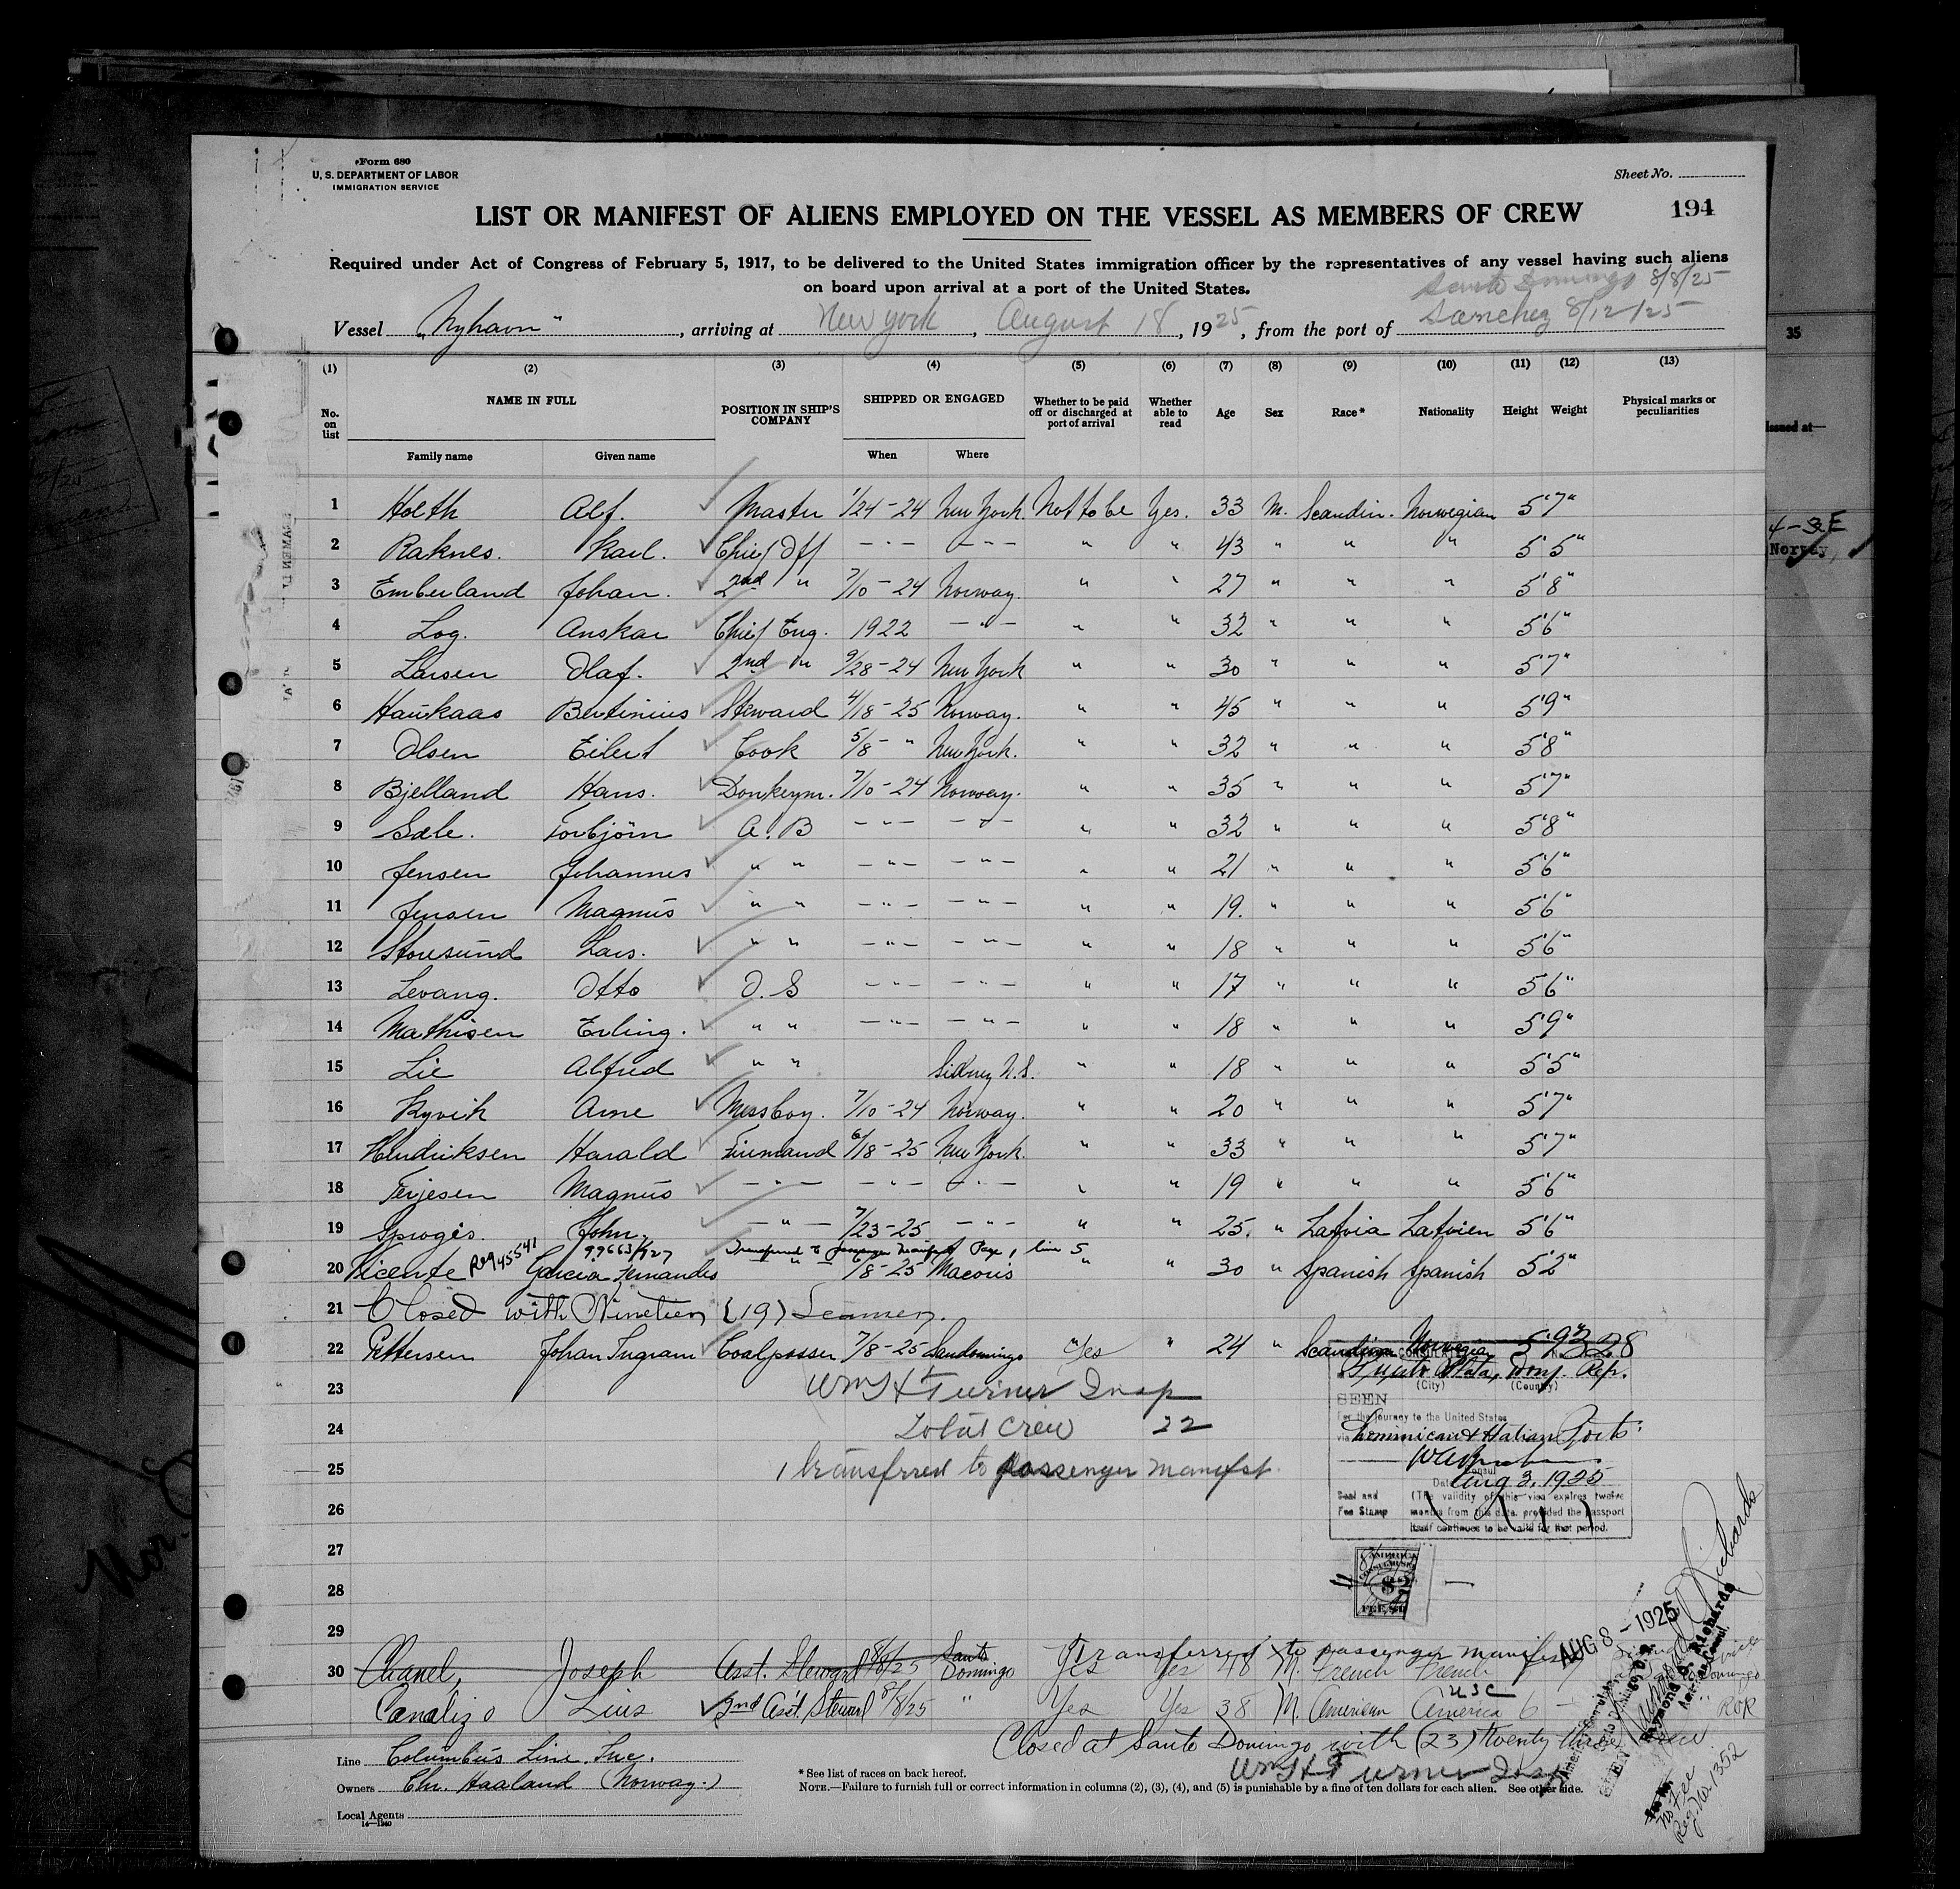 Form 680
U. S. DEPARTMENT OF LABOR
IMMIGRATION SERVICE
Sheet No.
LIST OR MANIFEST OF ALIENS EMPLOYED ON THE VESSEL AS MEMBERS OF CREW 194
Required under Act of Congress of February 5, 1917, to be delivered to the United States immigration officer by the representatives of any vessel having such aliens
on board upon arrival at a port of the United States.
Santo Domingo 8/8/25
Vessel "Nyhavn", arriving at New York, August 18, 1925, from the port of Sanchez 8/12/25
(1) (2) (3) (4) (5) (6) (7) (8) (9) (10) (11) (12) (13)
No. on list NAME IN FULL POSITION IN SHIP'S COMPANY SHIPPED OR ENGAGED Whether to be paid off or discharged at port of arrival Whether able to read Age Sex Race* Nationality Height Weight Physical marks or peculiarities
Family name Given name When Where
1 Holth Alf. Master 1/24-24 New York. Not to be Yes. 33 M. Scandin. Norwegian 5'7"
2 Raknes. Karl. Chief Off -"- -"- " " 43 " " " 5'5"
3 Emberland Johan. 2nd " 7/10-24 Norway. " " 27 " " " 5'8"
4 Log. Anskar Chief Eng. 1922 -"- " " 32 " " " 5'6"
5 Larsen Olaf. 2nd " 9/28-24 New York " " 30 " " " 5'7"
6 Haukaas Bertinius Steward 4/18-25 Norway. " " 45 " " " 5'9"
7 Olsen Eilert Cook 5/8-" New York. " " 32 " " " 5'8"
8 Bjelland Hans. Donkeym. 7/10-24 Norway. " " 35 " " " 5'7"
9 Sæle. Torbjörn A.B -"- -"- " " 32 " " " 5'8"
10 Jensen Johannes " " -"- -"- " " 21 " " " 5'6"
11 Jensen Magnus " " -"- -"- " " 19. " " " 5'6"
12 Storesund Lars. " " -"- -"- " " 18 " " " 5'6"
13 Levang. Otto O.S -"- -"- " " 17 " " " 5'6"
14 Mathisen Erling. " " -"- -"- " " 18 " " " 5'9"
15 Lie Alfred " " Sidney N.S. " " 18 " " " 5'5"
16 Kyvik Arne Messboy. 7/10-24 Norway. " " 20 " " " 5'7"
17 Hendriksen Harald Firemand 6/18-25 New York. " " 33 " " " 5'7"
18 Terjesen Magnus -"- -"- -"- " " 19 " " " 5'6"
19 Sprogis. John. -"- 7/23-25 -"- " " 25. " Latvia Latvien 5'6"
Reg 45541 99663/927 Transferred to passenger manifest Page 1 line 5
20 Vicente Garcia Fernandes -"- 6/8-25 Macoris " " 30 " Spanish Spanish 5'2"
21 Closed with Nineteen (19) Seamen.
22 Pettersen Johan Ingram Coalpasser 7/8-25 Sandomingo Yes " 24 " Scandina Norwegian 5'9"
23 Wm H Turner Insp
24 Total Crew 22
25 1 transferred to passenger manifest
26
27
28
29
328
Puerto Plata, Dom. Rep.
(City) (Country)
SEEN
For the journey to the United States
via Dominican & Haitian Ports.
Consul
Date Aug 3, 1925
Seal and Fee Stamp
(The validity of this visa expires twelve
months from this date, provided the passport
itself continues to be valid for that period.
$2
Transferred to passenger manifest
30 Chanel, Joseph Asst. Steward 8/8/25 Santo Domingo Yes Yes 48 M. French French
Canalizo Luis 2nd Ass't. Steward 8/8/25 " Yes Yes 38 M. American America USC 6 - " ROR
Closed at Santo Domingo with (23) twenty three crew.
Wm H Turner Insp
Line Columbus Line. Inc.
Owners Chr. Haaland (Norway.)
Local Agents
14—1240
* See list of races on back hereof.
NOTE.—Failure to furnish full or correct information in columns (2), (3), (4), and (5) is punishable by a fine of ten dollars for each alien. See other side.
AUG 8 - 1925
SEEN
Richards
No Fee
Reg. No. 1352
35
Issued at—
4-3E
Norway,
Nor.